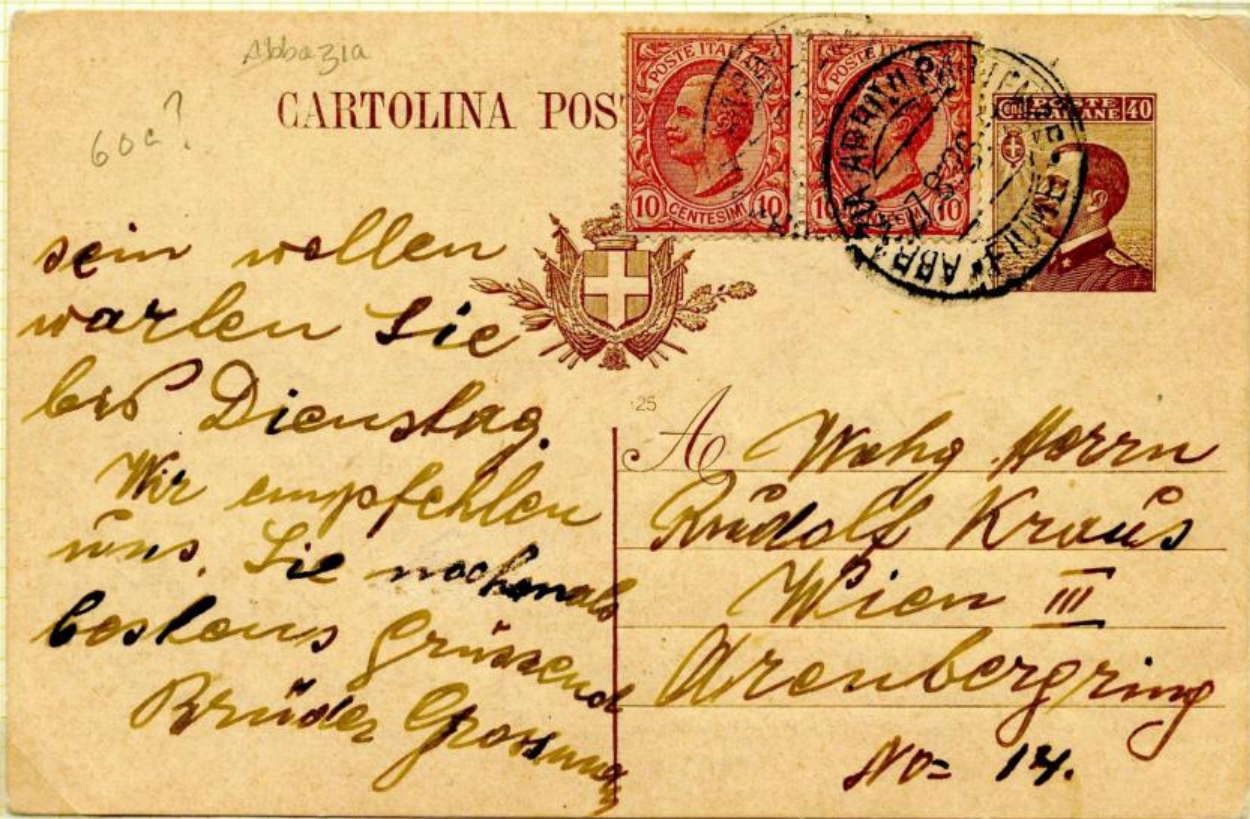 Abbazia
60c?
CARTOLINA POS
POSTE ITA
10 CENTESIMI 10
POSTE ITA
10 CENTESIMI 10
Cent. POSTE ITALIANE 40
17.8.26
sein wollen
warten Sie
bis Dienstag.
Wir empfehlen
uns, Sie nochmals
bestens grüssend
Brüder
25
A Wohg Herrn
Rudolf Kraus
Wien III
Arenbergring
No= 14.